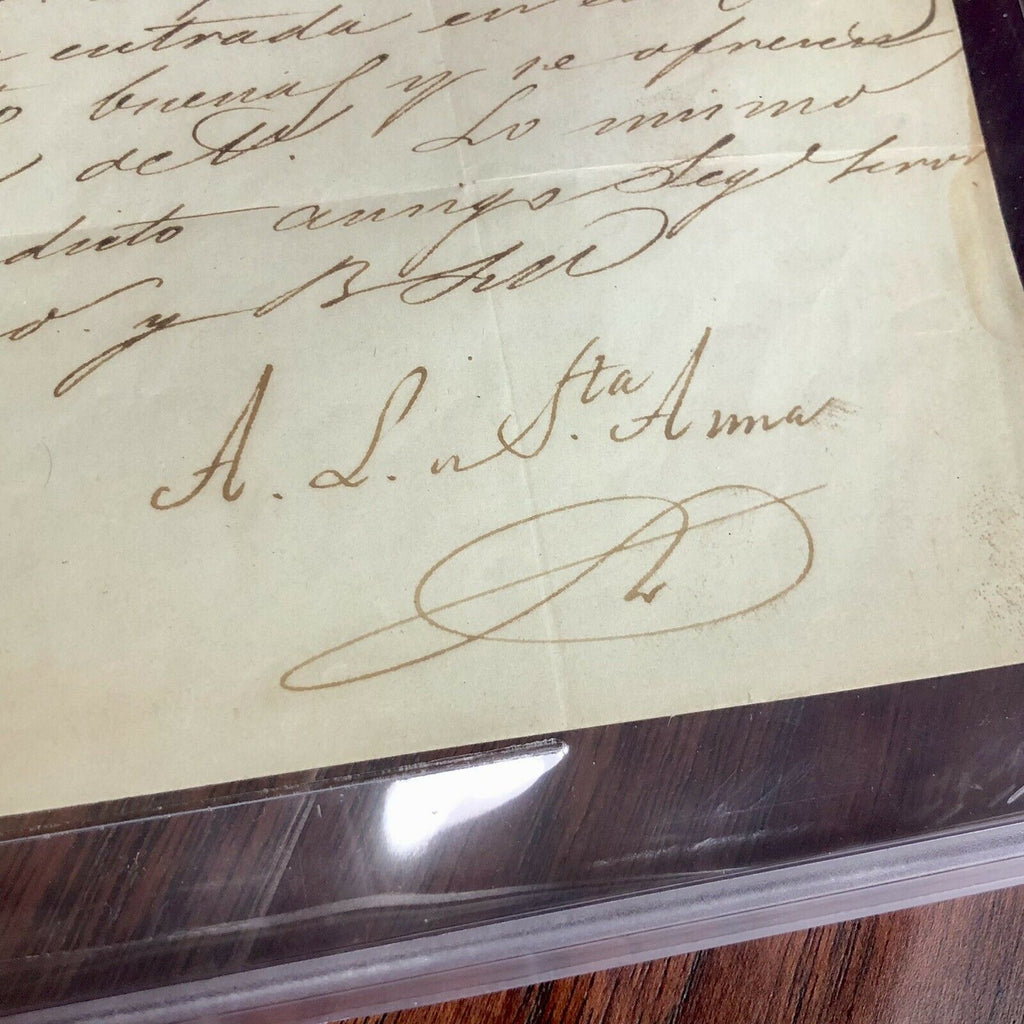 entrada en el
buenas y se ofrecen
de V. Lo mismo
dicto amigo Seg.º serv
y B S M
A. L. de S.ta Anna